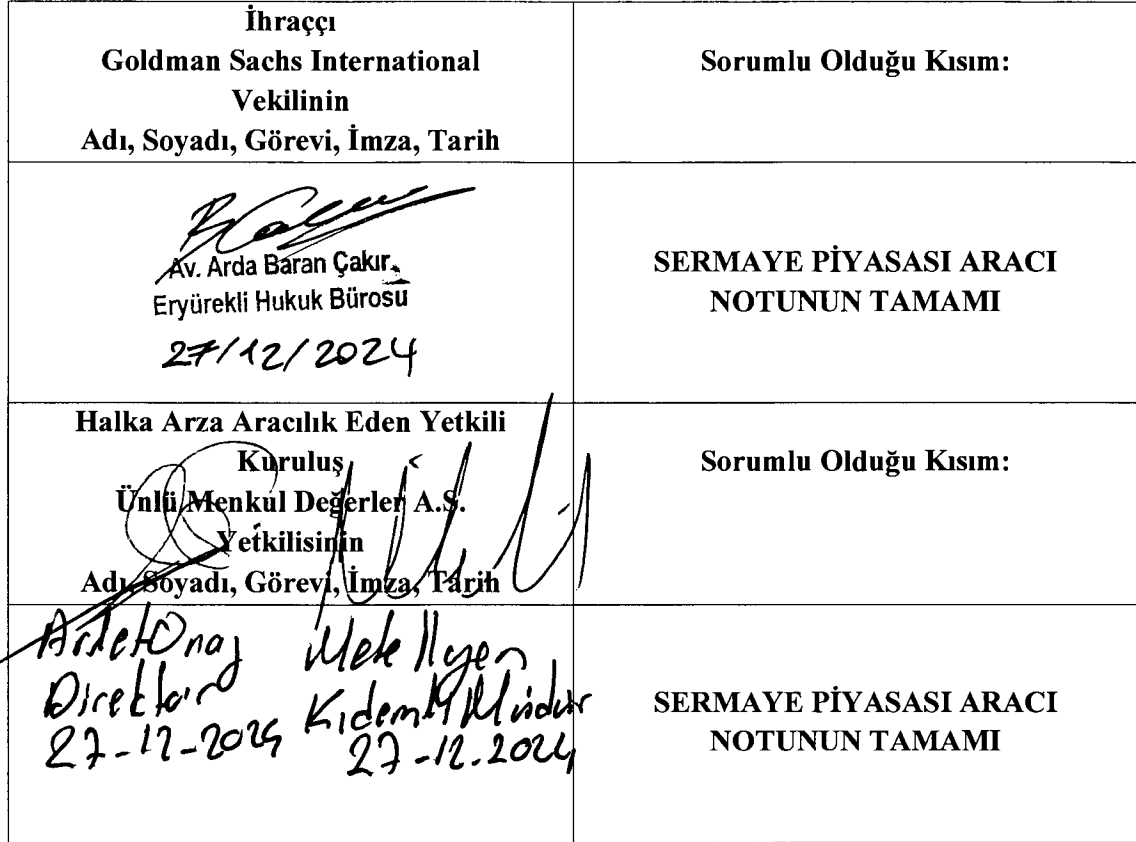 İhraççı
Goldman Sachs International
Vekilinin
Adı, Soyadı, Görevi, İmza, Tarih
Sorumlu Olduğu Kısım:
Av. Arda Baran Çakır
Eryürekli Hukuk Bürosu
27/12/2024
SERMAYE PİYASASI ARACI
NOTUNUN TAMAMI
Halka Arza Aracılık Eden Yetkili
Kuruluş
Ünlü Menkul Değerler A.Ş.
Yetkilisinin
Adı, Soyadı, Görevi, İmza, Tarih
Sorumlu Olduğu Kısım:
Mete
Direktör Kıdemli Müdür
27-12-2024 27-12.2024
SERMAYE PİYASASI ARACI
NOTUNUN TAMAMI